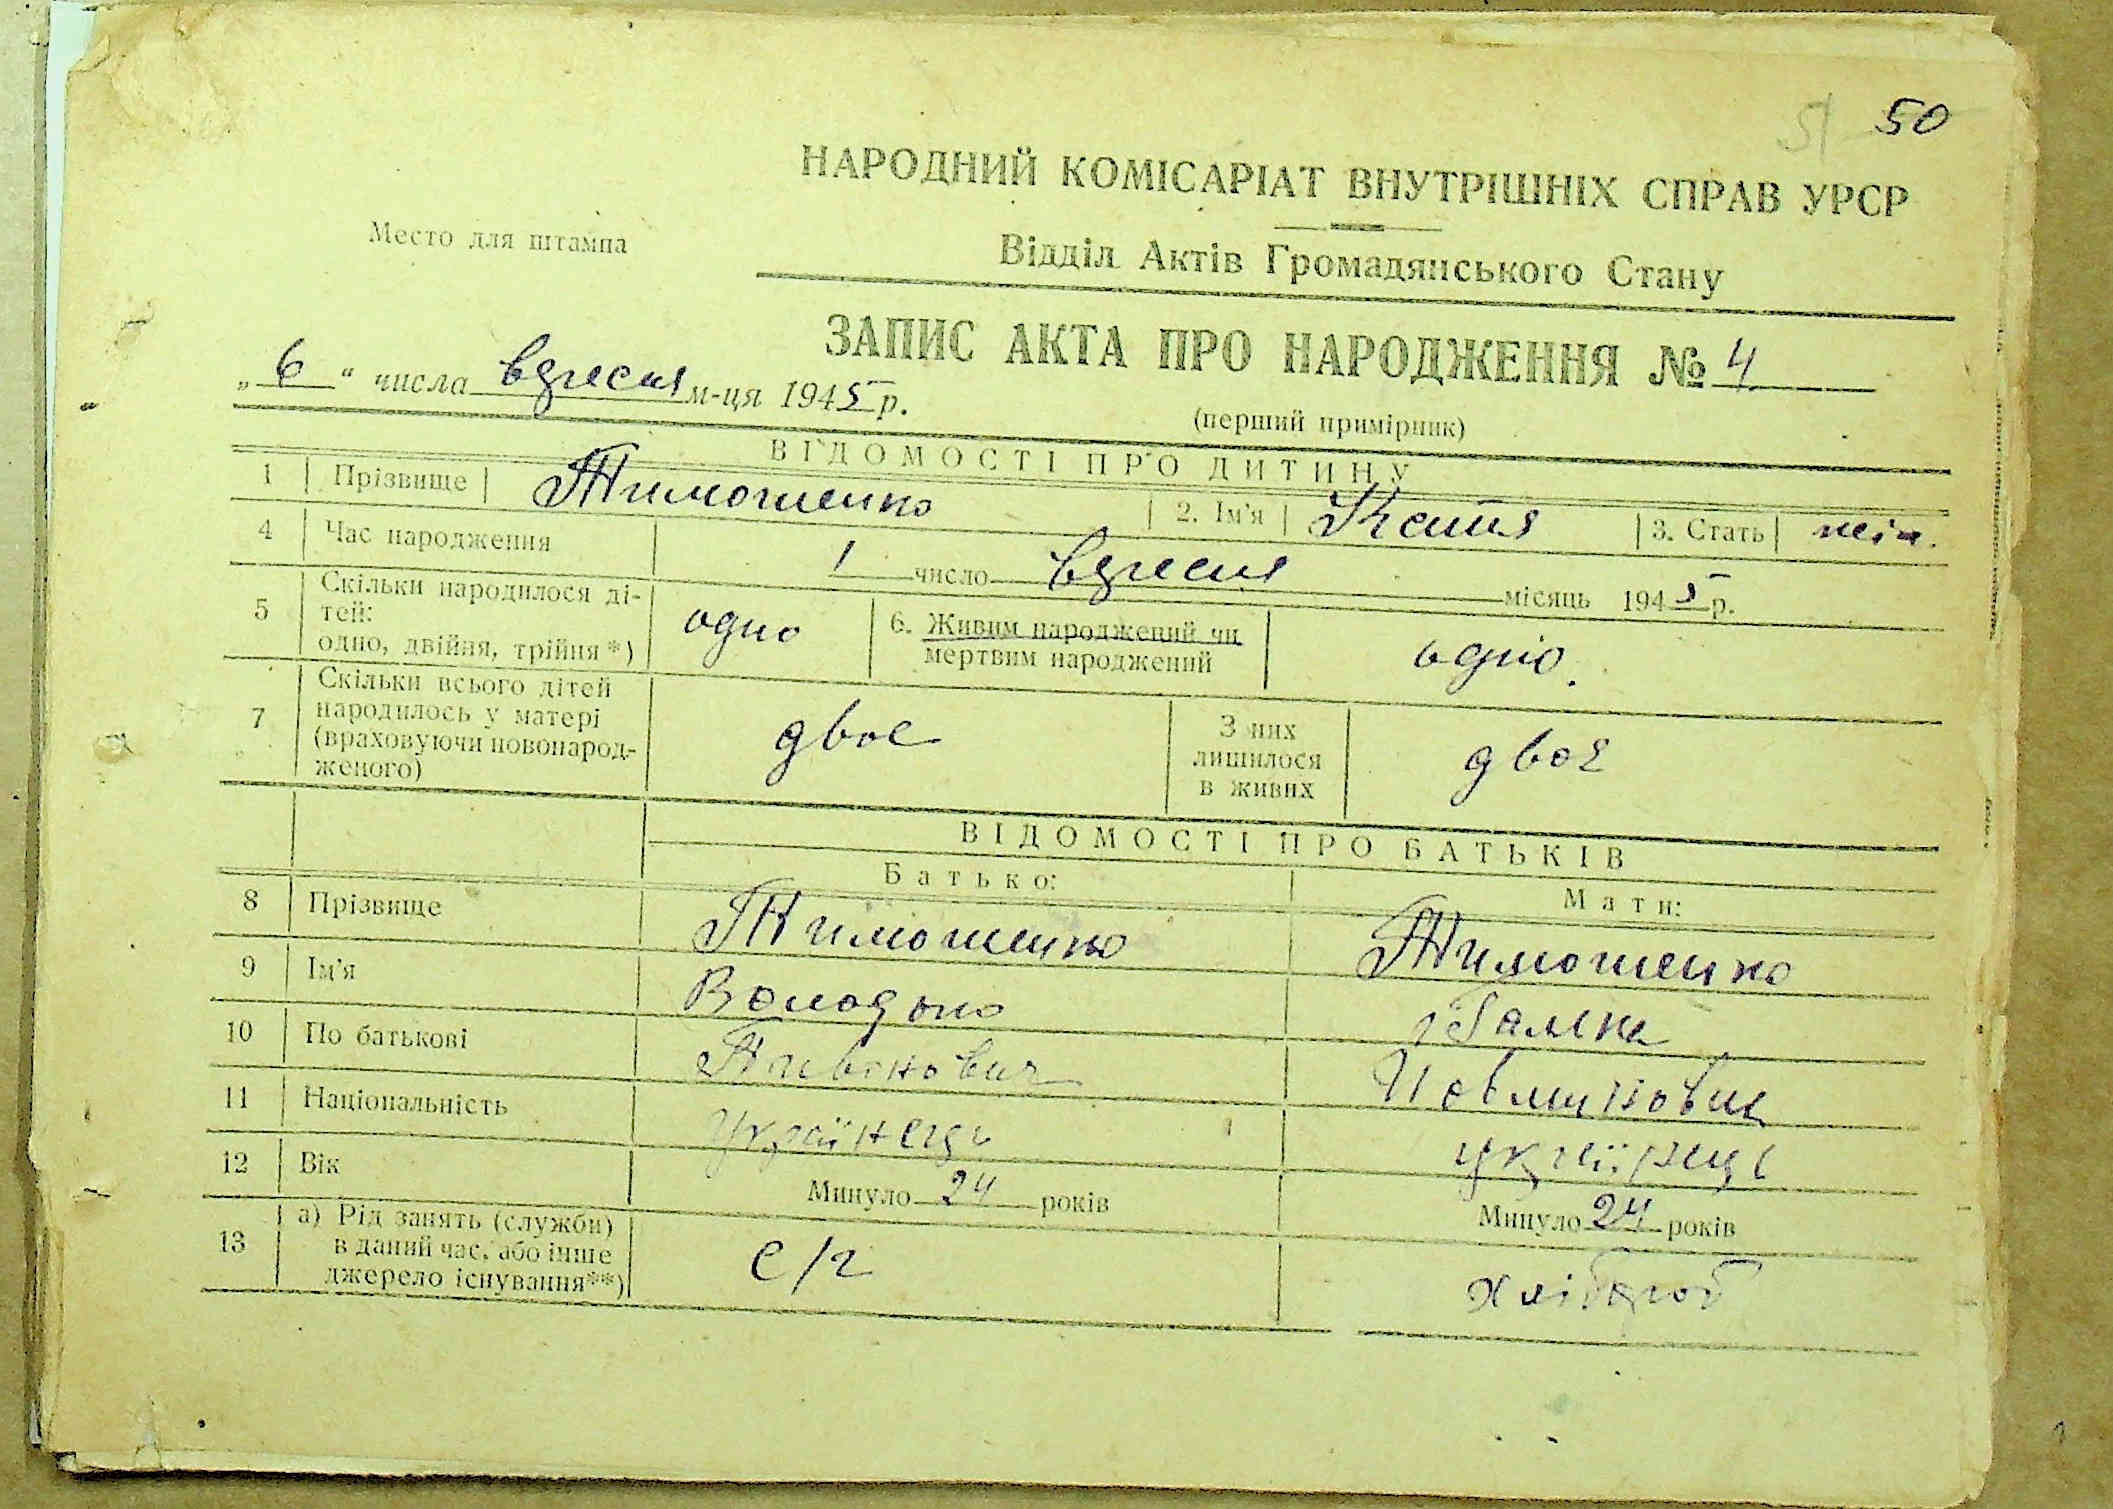 51 50
НАРОДНИЙ КОМІСАРІАТ ВНУТРІШНІХ СПРАВ УРСР
Место для штампа
Відділ Актів Громадянського Стану
ЗАПИС АКТА ПРО НАРОДЖЕННЯ № 4
„ 6 “ числа вересня м-ця 1945 р.
(перший примірник)
ВІДОМОСТІ ПРО ДИТИНУ
1 Прізвище Тимошенко 2. Ім'я Катя 3. Стать жін.
4 Час народження 1 число вересня місяць 1945 р.
5 Скільки народилося ді-
тей:
одно, двійня, трійня*) одно 6. Живим народжений чи
мертвим народжений одно.
7 Скільки всього дітей
народилось у матері
(враховуючи новонарод-
женого) двоє З них
лишилося
в живих двоє
ВІДОМОСТІ ПРО БАТЬКІВ
Батько: Мати:
8 Прізвище Тимошенко Тимошенко
9 Ім'я Галька
10 По батькові
11 Національність Українець українець
12 Вік Минуло 24 років Минуло 24 років
13 а) Рід занять (служби)
в даний час, або інше
джерело існування**) с/г хлібороб